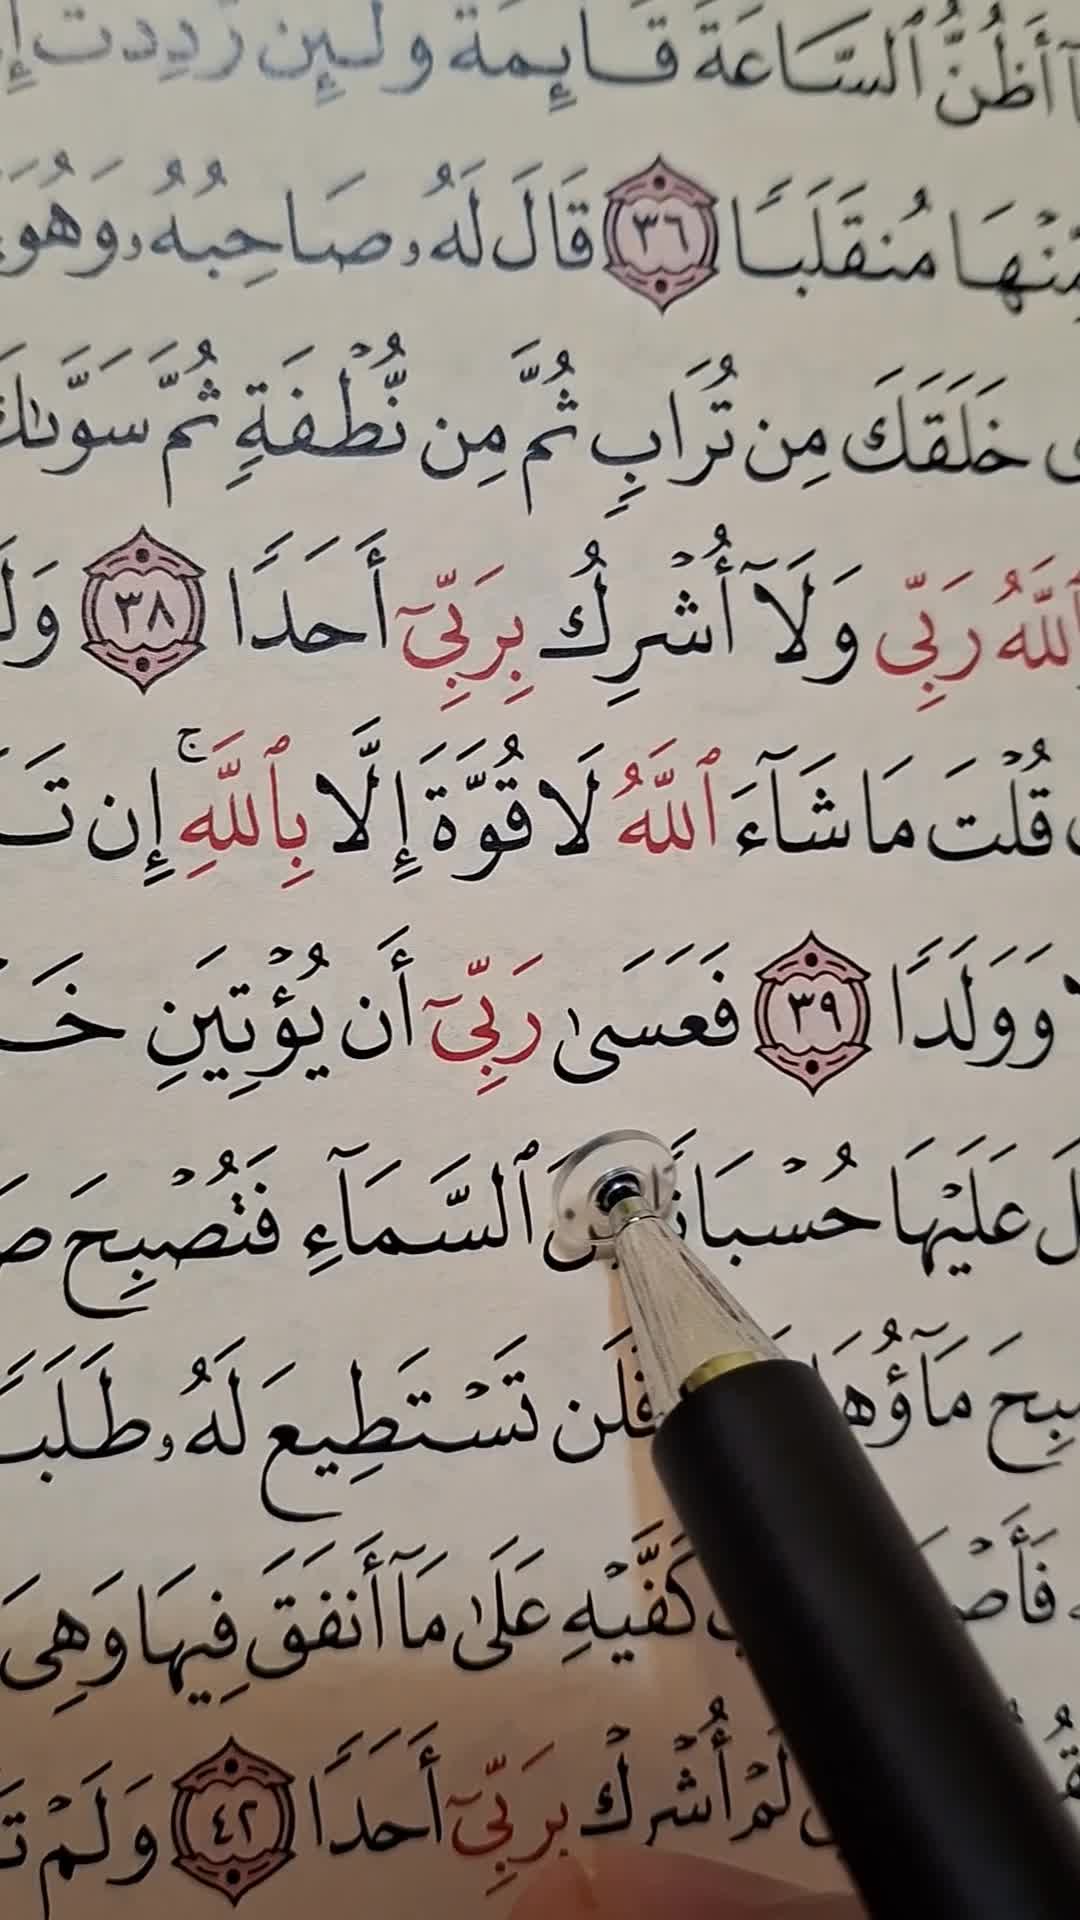 أَظُنُّ ٱلسَّاعَةَ قَآئِمَةً وَلَئِن رُّدِدتُّ
مِّنْهَا مُنقَلَبًا ٣٦ قَالَ لَهُۥ صَاحِبُهُۥ وَهُوَ
خَلَقَكَ مِن تُرَابٍ ثُمَّ مِن نُّطْفَةٍ ثُمَّ سَوَّىٰكَ
ٱللَّهُ رَبِّى وَلَآ أُشْرِكُ بِرَبِّىٓ أَحَدًا ٣٨
قُلْتَ مَا شَآءَ ٱللَّهُ لَا قُوَّةَ إِلَّا بِٱللَّهِ ۚ إِن
وَوَلَدًا ٣٩ فَعَسَىٰ رَبِّىٓ أَن يُؤْتِيَنِ
عَلَيْهَا حُسْبَانًا ٱلسَّمَآءِ فَتُصْبِحَ
مَآؤُهَا فَلَن تَسْتَطِيعَ لَهُۥ طَلَبًا
كَفَّيْهِ عَلَىٰ مَآ أَنفَقَ فِيهَا وَهِىَ
لَمْ أُشْرِكْ بِرَبِّىٓ أَحَدًا ٤٢ وَلَمْ